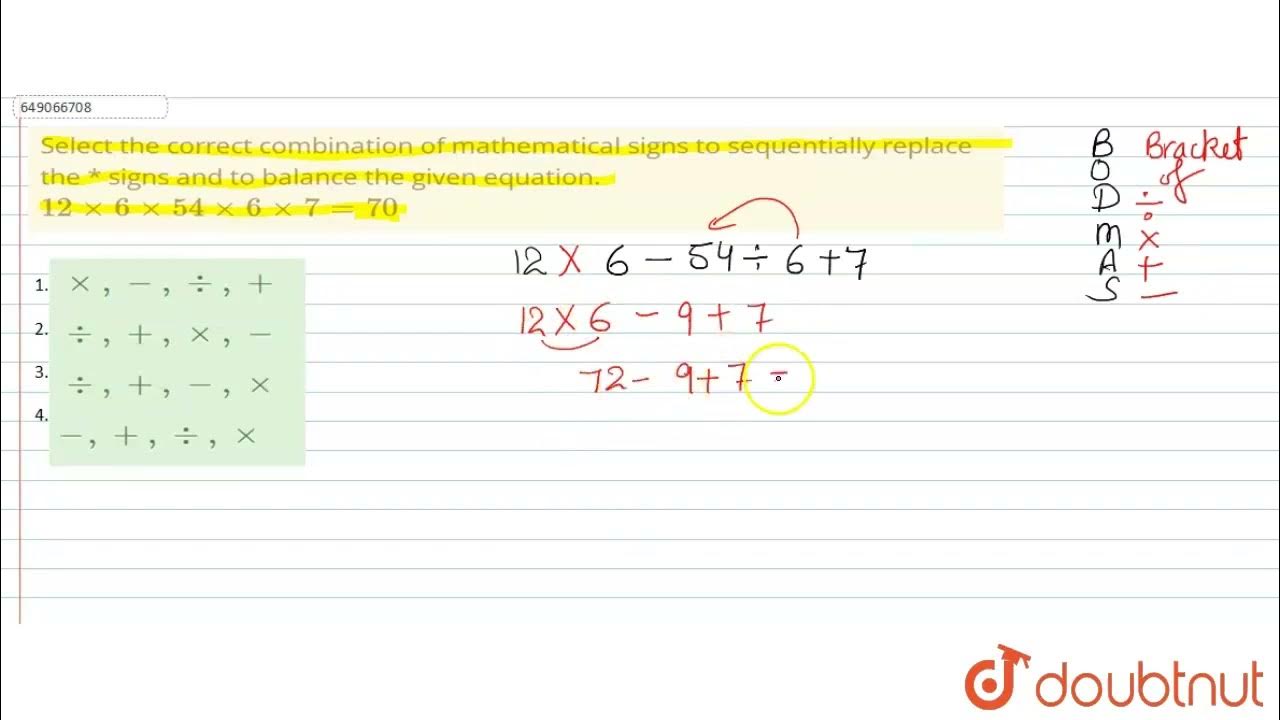 649066708
Select the correct combination of mathematical signs to sequentially replace
the * signs and to balance the given equation.
12 × 6 × 54 × 6 × 7 = 70
1. × , − , ÷ , +
2. ÷ , + , × , −
3. ÷ , + , − , ×
4. − , + , ÷ , ×
12 × 6 − 54 ÷ 6 + 7
12 × 6 − 9 + 7
72 − 9 + 7 =
B Bracket
O of
D ÷
M ×
A +
S −
doubtnut